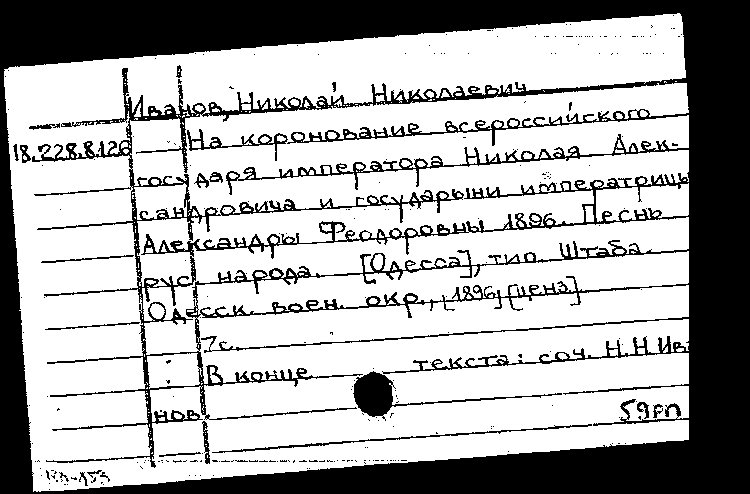 Иванов, Николай Николаевич
18.228.8.126 На коронование всероссийского
государя императора Николая Алек-
сандровича и государыни императрицы
Александры Феодоровны 1896. Песнь
рус. народа. [Одесса], тип. Штаба
Одесск. воен. окр., [1896] [ценз].
7с.
В конце текста: соч. Н.Н.Ива
нов.
59рп